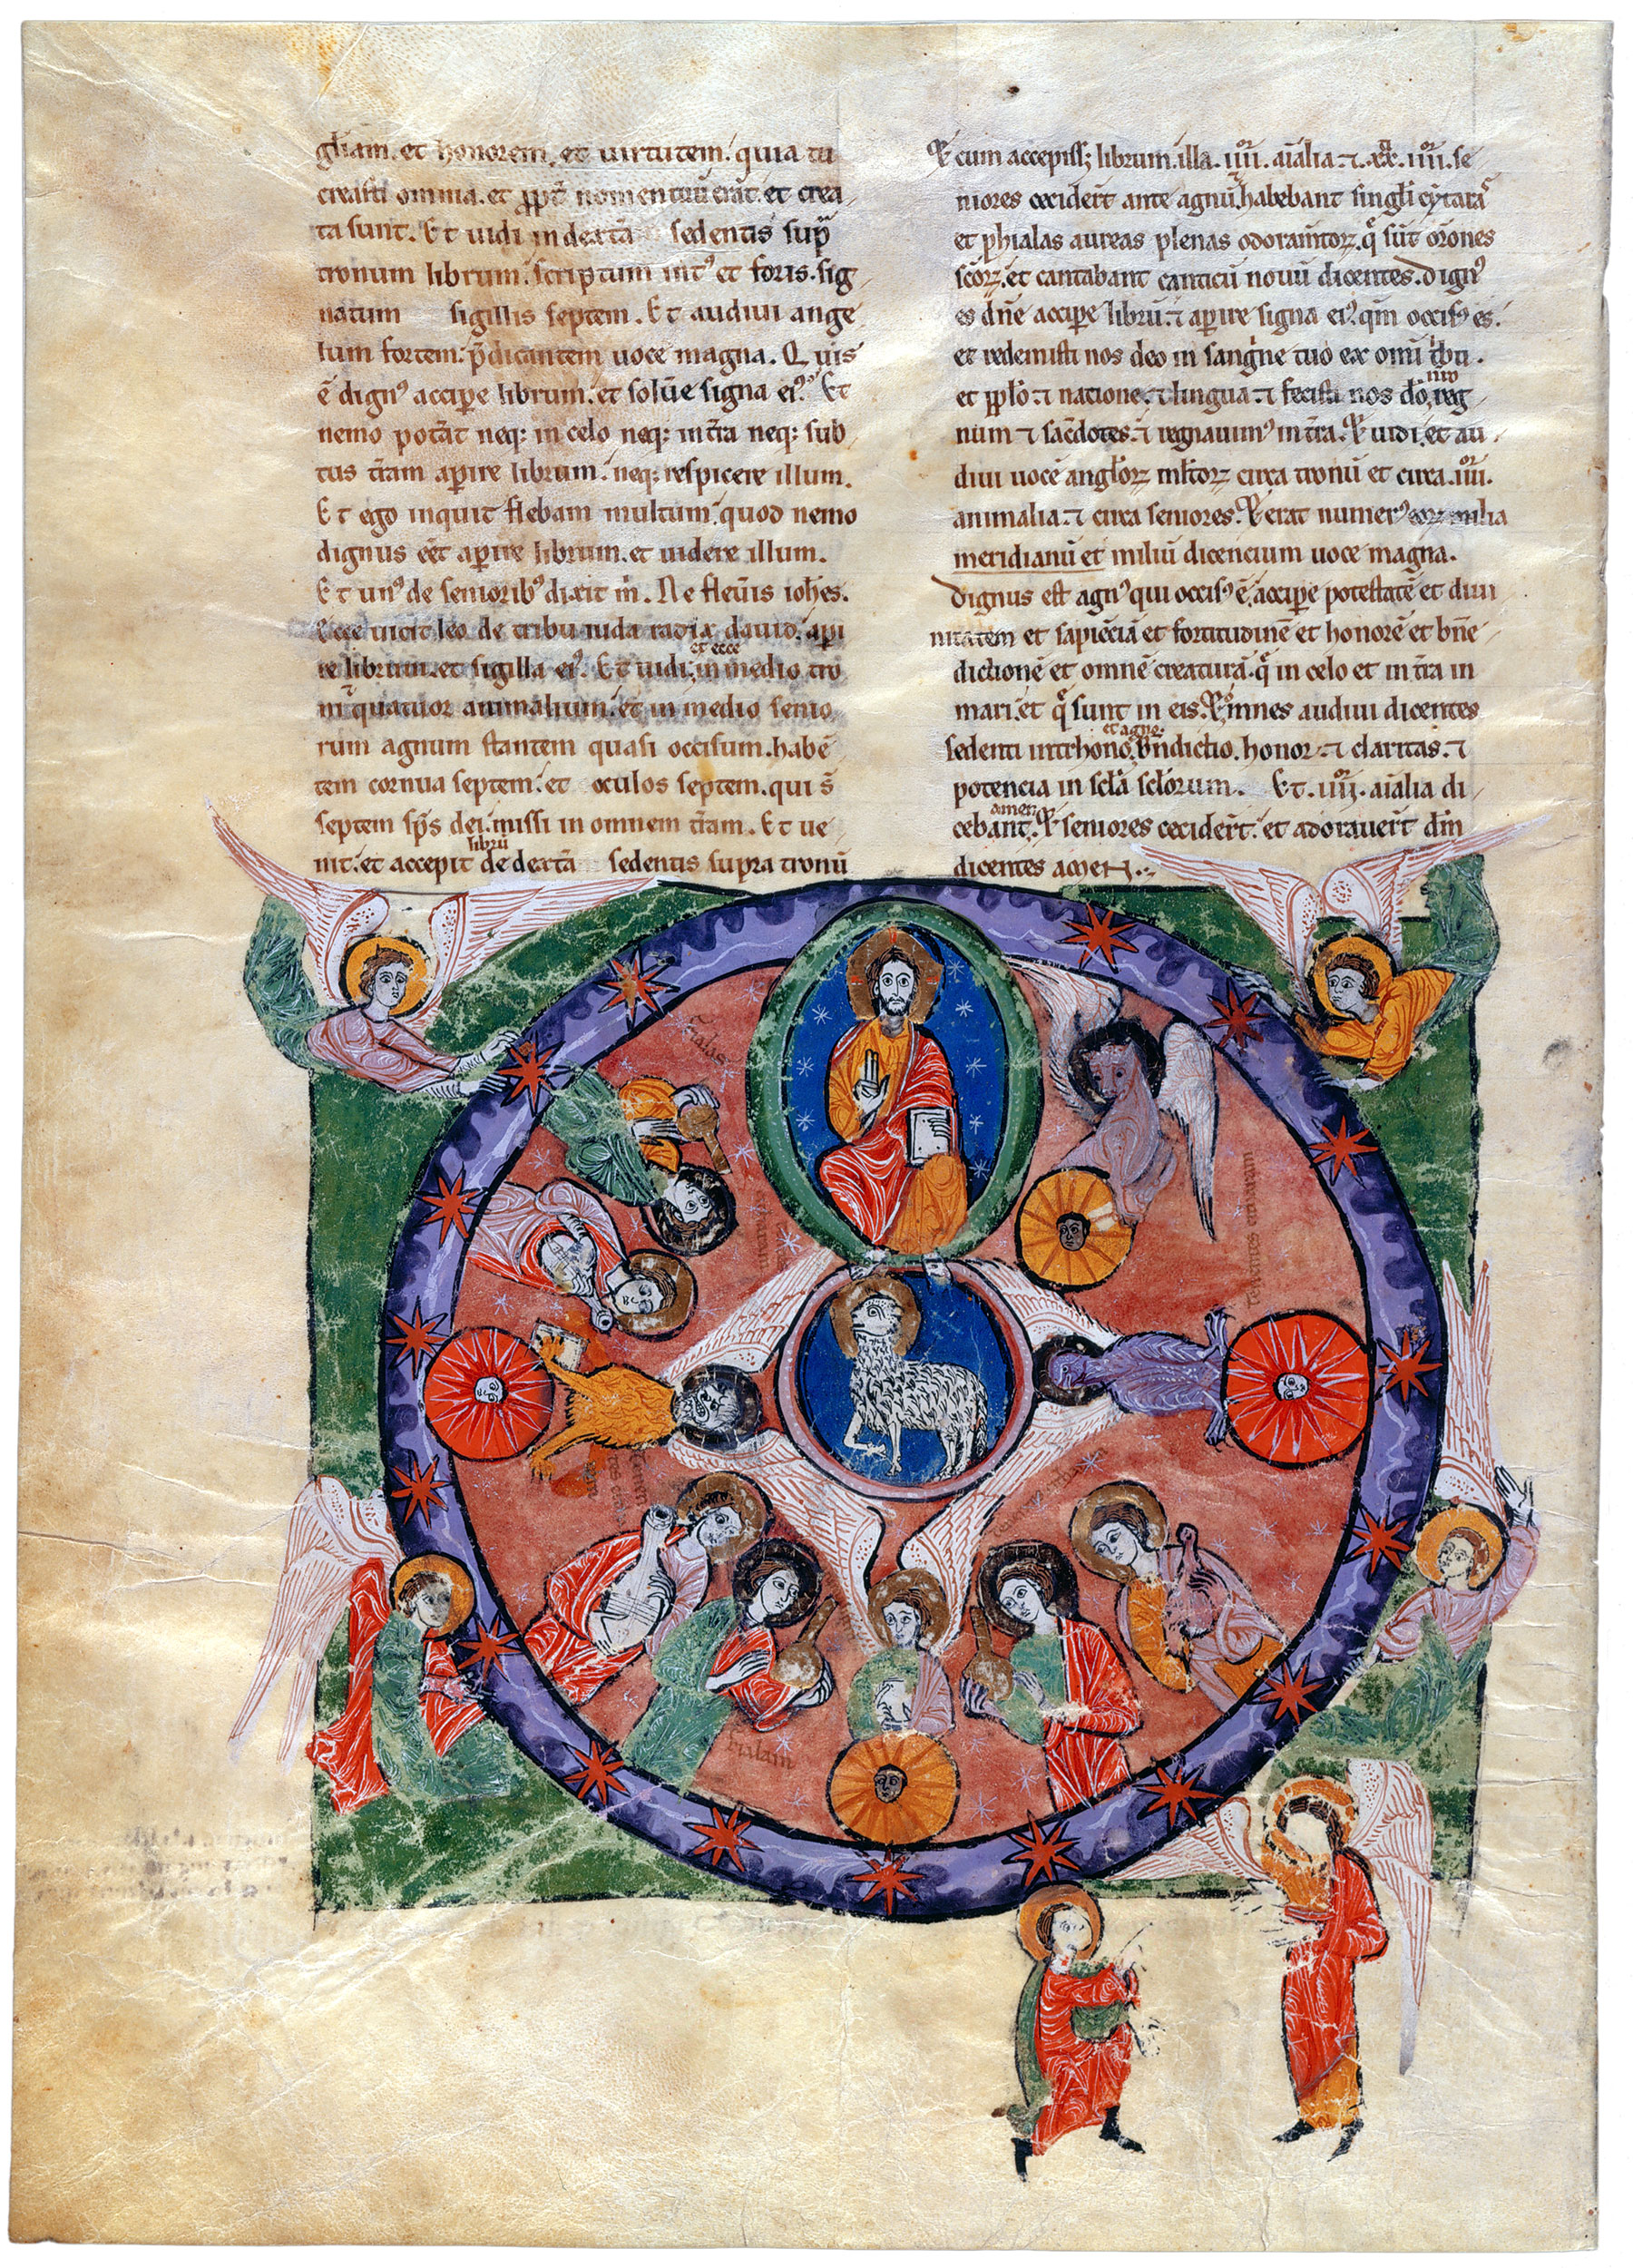 gl̄iam. et honorem. et uirtutem. quia tu
creasti omnia. et ꝓpt̄ nomen tuū erāt. et crea
ta sunt. Et uidi in dextā sedentis sup̄
tronum librum. scriptum intꝰ et foris. sig
natum sigillis septem. Et audiui ange
lum fortem. p̄dicantem uoce magna. Quis
ē dignꝰ accipe librum. et solūe signa eiꝰ. Et
nemo potāt neq: in celo neq: in t̄ra neq: sub
tus t̄ram apire librum. neq: respicere illum.
Et ego inquit flebam multum. quod nemo
dignus eēt apire librum. et uidere illum.
Et unꝰ de senioribꝰ dixit m̄. Ne fleūis ioh̄es.
Ecce uicit leo de tribu iuda radix dauid. api
re librum. et sigilla eiꝰ. Et uidi. et ecce in medio tro
ni quatuor animalium. et in medio senio
rum agnum stantem quasi occisum. habē
tem cornua septem. et oculos septem. qui s̄
septem sp̄s dei. missi in omnem t̄ram. Et ue
nit. et accepit librū de dextā sedentis supra tronū
Et cum accepiss; librum. illa. iiiiᵒʳ. aīalia. ⁊. xx. iiiiᵒʳ. se
niores cecider̄t ante agnū. habebant singl̄i cytaraꝰ
et phialas aureas plenas odoramtoꝝ. q̄ sūt or̄ones
sc̄oꝝ. et cantabant canticū nouū dicentes. Dignꝰ
es dn̄e accipe librū. ⁊ apire signa eiꝰ. qm̄ occisꝰ es.
et redemisti nos deo in sangine tuo ex omī tbu.
et ppl̄o. ⁊ natione. ⁊ lingua. ⁊ fecisti nos dō nr̄o reg
num ⁊ sac̄dotes. ⁊ regnauimꝰ in t̄ra. Et uidi. et au
diui uocē angl̄oꝝ ml̄toꝝ circa tronū et circa. iiiiᵒʳ.
animalia. ⁊ circa seniores. Et erat numerꝰ eoꝝ milia
meridianū et miliū dicencium uoce magna.
Dignus est agnꝰ qui occisꝰ ē. accipe potestatē et diui
nitatem et sapiēciā et fortitudinē et honorē et bn̄e
dictionē et omnē creaturā. q̄ in celo et in t̄ra in
mari. et q̄ sunt in eis. Et om̄nes audiui dicentes
sedenti in trhono. et agno. bn̄dictio. honor. ⁊ claritas. ⁊
potencia in scl̄a scl̄orum. Et. iiiiᵒʳ. aīalia di
cebant. amen. Et seniores cecider̄t. et adorauer̄t dm̄
dicentes amen.
fialas
tenentes citharam
fialam